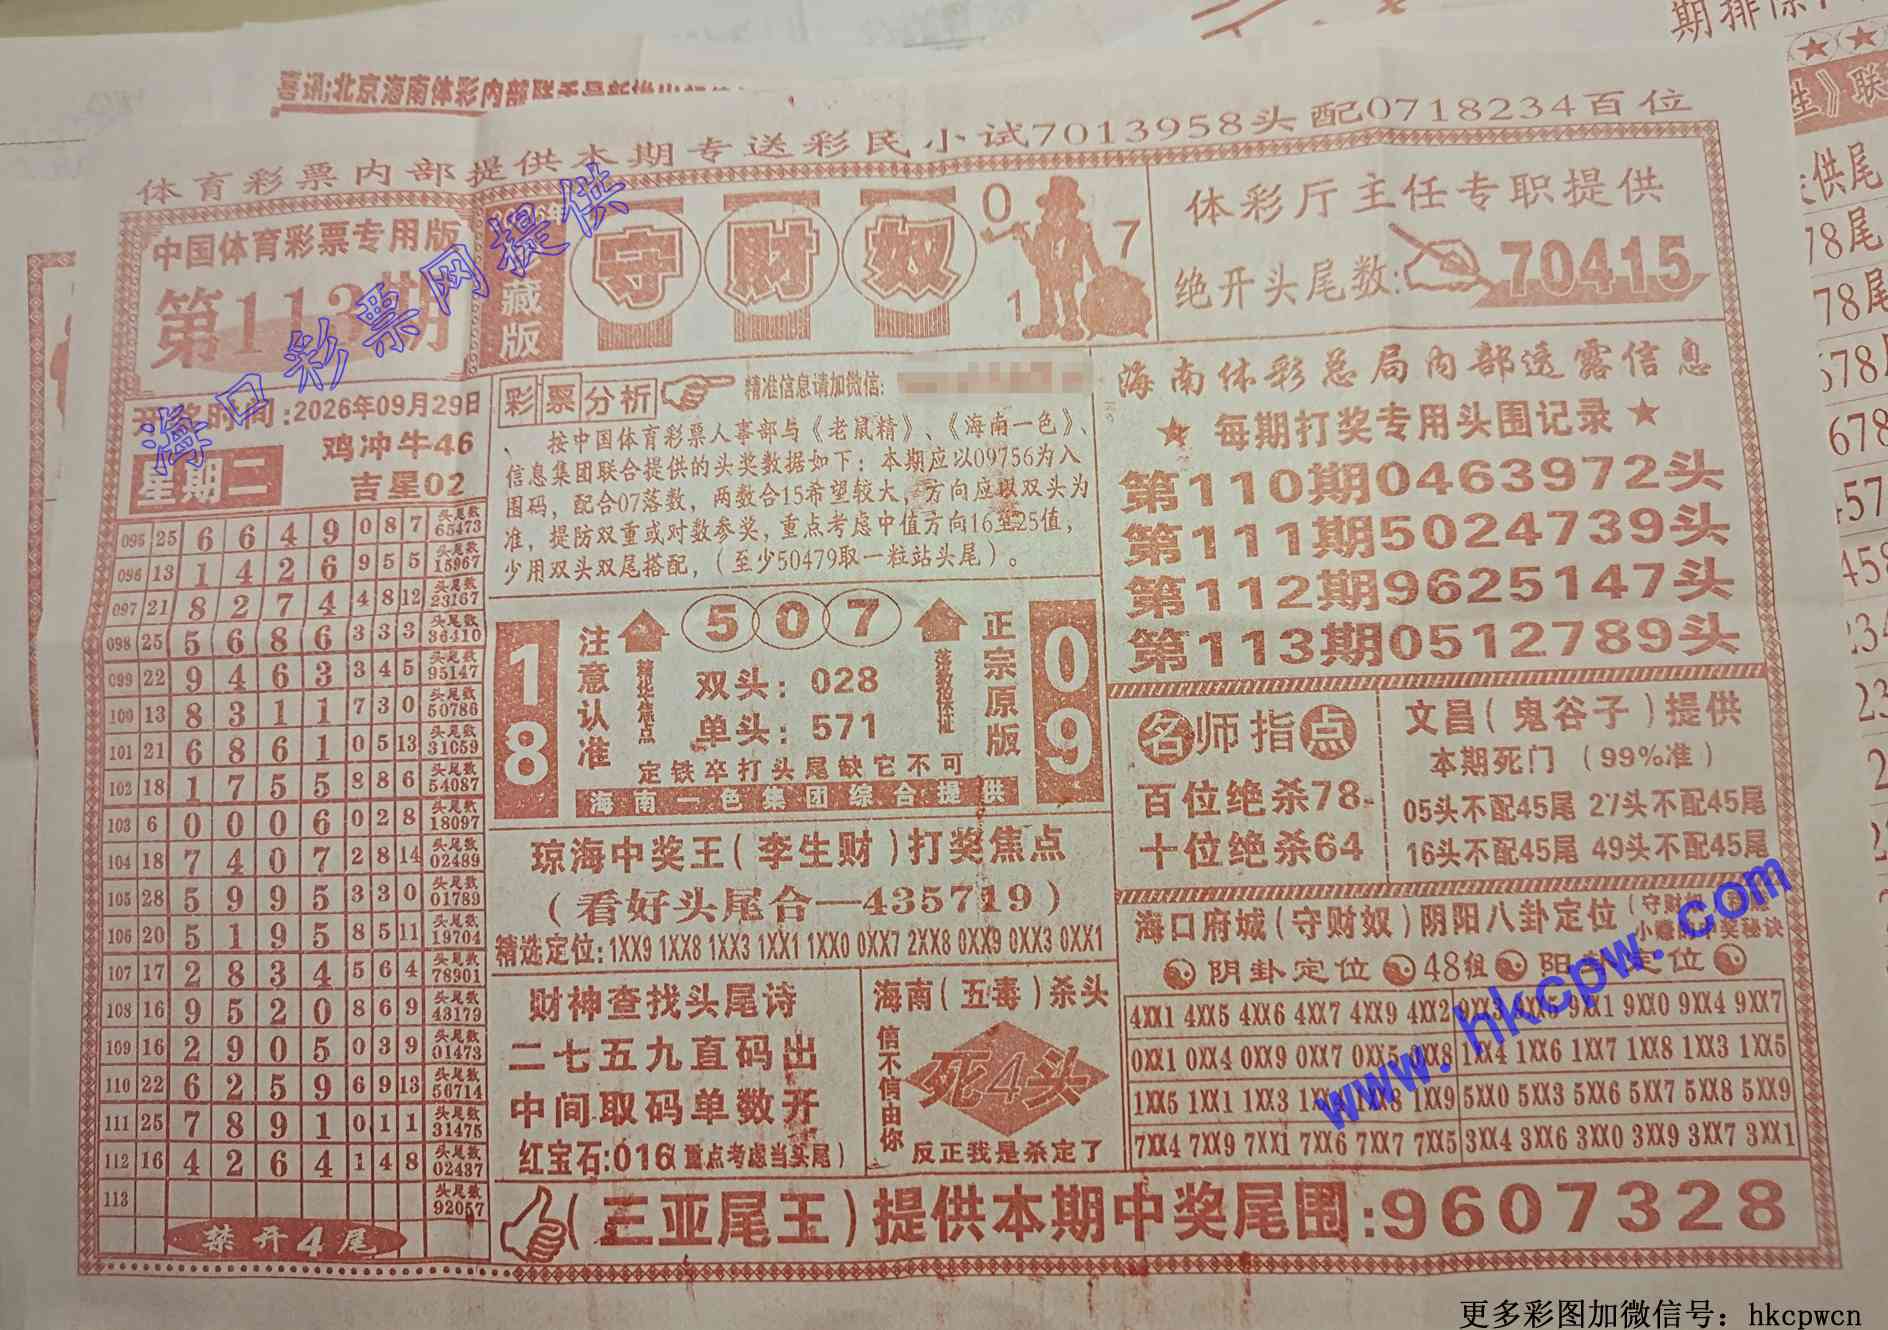 喜讯;北京海南体彩内部联手最新推出
期排除
体育彩票内部提供本期专送彩民小试7013958头配0718234百位
中国体育彩票专用版
第113期
开奖时间:2026年09月29日
星期二
鸡冲牛46
吉星02
藏版
守财奴
0
7
1
体彩厅主任专职提供
绝开头尾数:70415
095 25 6 6 4 9 0 8 7 头尾数 65473
096 13 1 4 2 6 9 5 5 头尾数 15967
097 21 8 2 7 4 4 8 12 头尾数 23167
098 25 5 6 8 6 3 3 3 头尾数 36410
099 22 9 4 6 3 3 4 5 头尾数 95147
100 13 8 3 1 1 7 3 0 头尾数 50786
101 21 6 8 6 1 0 5 13 头尾数 31059
102 18 1 7 5 5 8 8 6 头尾数 54087
103 6 0 0 0 6 0 2 8 头尾数 18097
104 18 7 4 0 7 2 8 14 头尾数 02489
105 28 5 9 9 5 3 3 0 头尾数 01789
106 20 5 1 9 5 8 5 11 头尾数 19704
107 17 2 8 3 4 5 6 4 头尾数 78901
108 16 9 5 2 0 8 6 9 头尾数 43179
109 16 2 9 0 5 0 3 9 头尾数 01473
110 22 6 2 5 9 6 9 13 头尾数 56714
111 25 7 8 9 1 0 1 1 头尾数 31475
112 16 4 2 6 4 1 4 8 头尾数 02437
113 头尾数 92057
禁开4尾
彩票分析
精准信息请加微信:
按中国体育彩票人事部与《老鼠精》、《海南一色》、
信息集团联合提供的头奖数据如下：本期应以09756为入
围码，配合07落数，两数合15希望较大，方向应以双头为
准，提防双重或对数参奖，重点考虑中值方向16至25值，
少用双头双尾搭配，（至少50479取一粒站头尾）。
18
注意认准
精华焦点
507
双头：028
单头：571
落数位保证
正宗原版
09
定铁卒打头尾缺它不可
海南一色集团综合提供
琼海中奖王(李生财)打奖焦点
(看好头尾合—435719)
精选定位:1XX9 1XX8 1XX3 1XX1 1XX0 0XX7 2XX8 0XX9 0XX3 0XX1
财神查找头尾诗
二七五九直码出
中间取码单数开
红宝石:016(重点考虑当头尾)
海南(五毒)杀头
信不信由你
死4头
反正我是杀定了
海南体彩总局内部透露信息
★每期打奖专用头围记录★
第110期0463972头
第111期5024739头
第112期9625147头
第113期0512789头
名师指点
百位绝杀78
十位绝杀64
文昌(鬼谷子)提供
本期死门(99%准)
05头不配45尾 27头不配45尾
16头不配45尾 49头不配45尾
海口府城(守财奴)阴阳八卦定位
阴卦定位 48组 阳卦定位
4XX1 4XX5 4XX6 4XX7 4XX9 4XX2 9XX3 9XX5 9XX1 9XX0 9XX4 9XX7
0XX1 0XX4 0XX9 0XX7 0XX5 0XX8 1XX4 1XX6 1XX7 1XX8 1XX3 1XX5
1XX5 1XX1 1XX3 1XX4 1XX8 1XX9 5XX0 5XX3 5XX6 5XX7 5XX8 5XX9
7XX4 7XX9 7XX1 7XX6 7XX7 7XX5 3XX4 3XX6 3XX0 3XX9 3XX7 3XX1
(三亚尾王)提供本期中奖尾围:9607328
海口彩票网提供
www.hkcpw.com
更多彩图加微信号：hkcpwcn